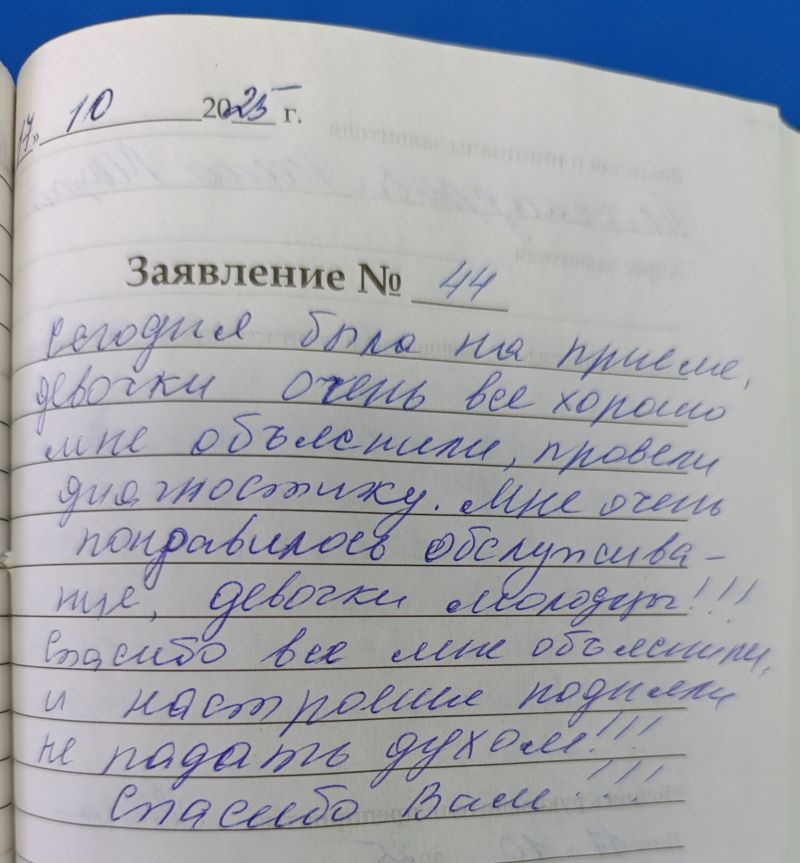 17» 10 2025 г.
Заявление № 44
Сегодня была на приеме,
девочки очень все хорошо
мне объяснили, провели
диагностику. Мне очень
понравилось обслужива-
ние, девочки молодцы!!!
Спасибо все мне объяснили,
и настроение подняли
не падать духом!!!
Спасибо Вам!!!